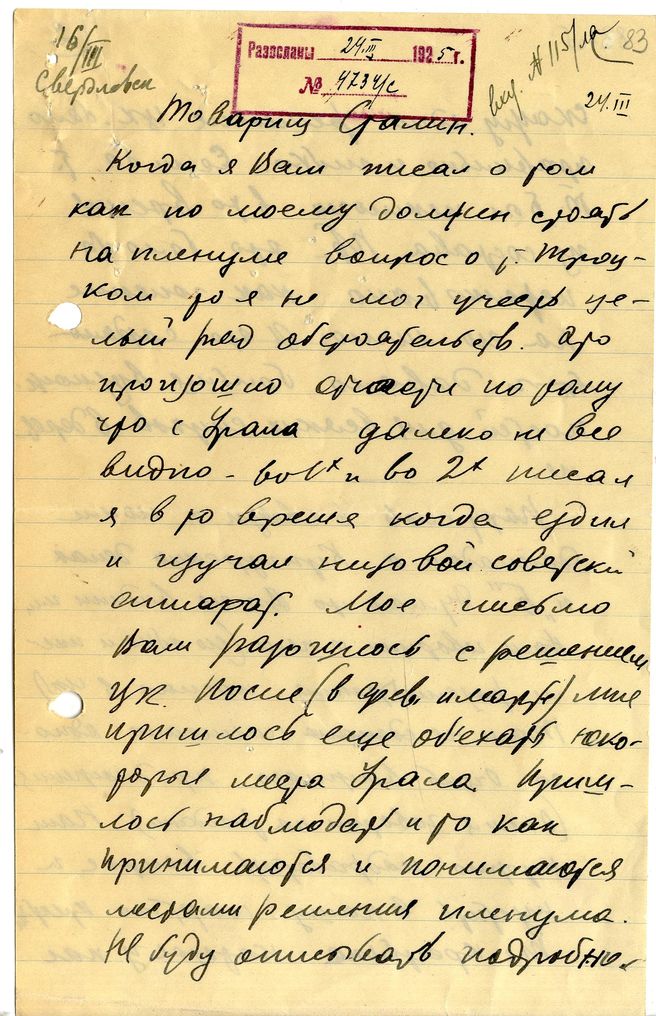 16/III
Свердловск
Разосланы 24.III 1925 г.
№ 4734/с
вх. № 115/ла
83
24.III
Товарищ Сталин.
Когда я Вам писал о том
как по моему должен стоять
на пленуме вопрос о т. Троц-
ком то я не мог учесть це-
лый ряд обстоятельств. Это
произошло отчасти по тому
что с Урала далеко не все
видно – во 1х и во 2х писал
я в то время когда ездил
и изучал низовой советский
аппарат. Мое письмо
Вам разошлось с решением
ЦК. После (в февр и марте) мне
пришлось еще об'ехать неко-
торые места Урала. Приш-
лось наблюдать и то как
принимаются и понимаются
местами решения пленума.
Не буду описывать подробно.